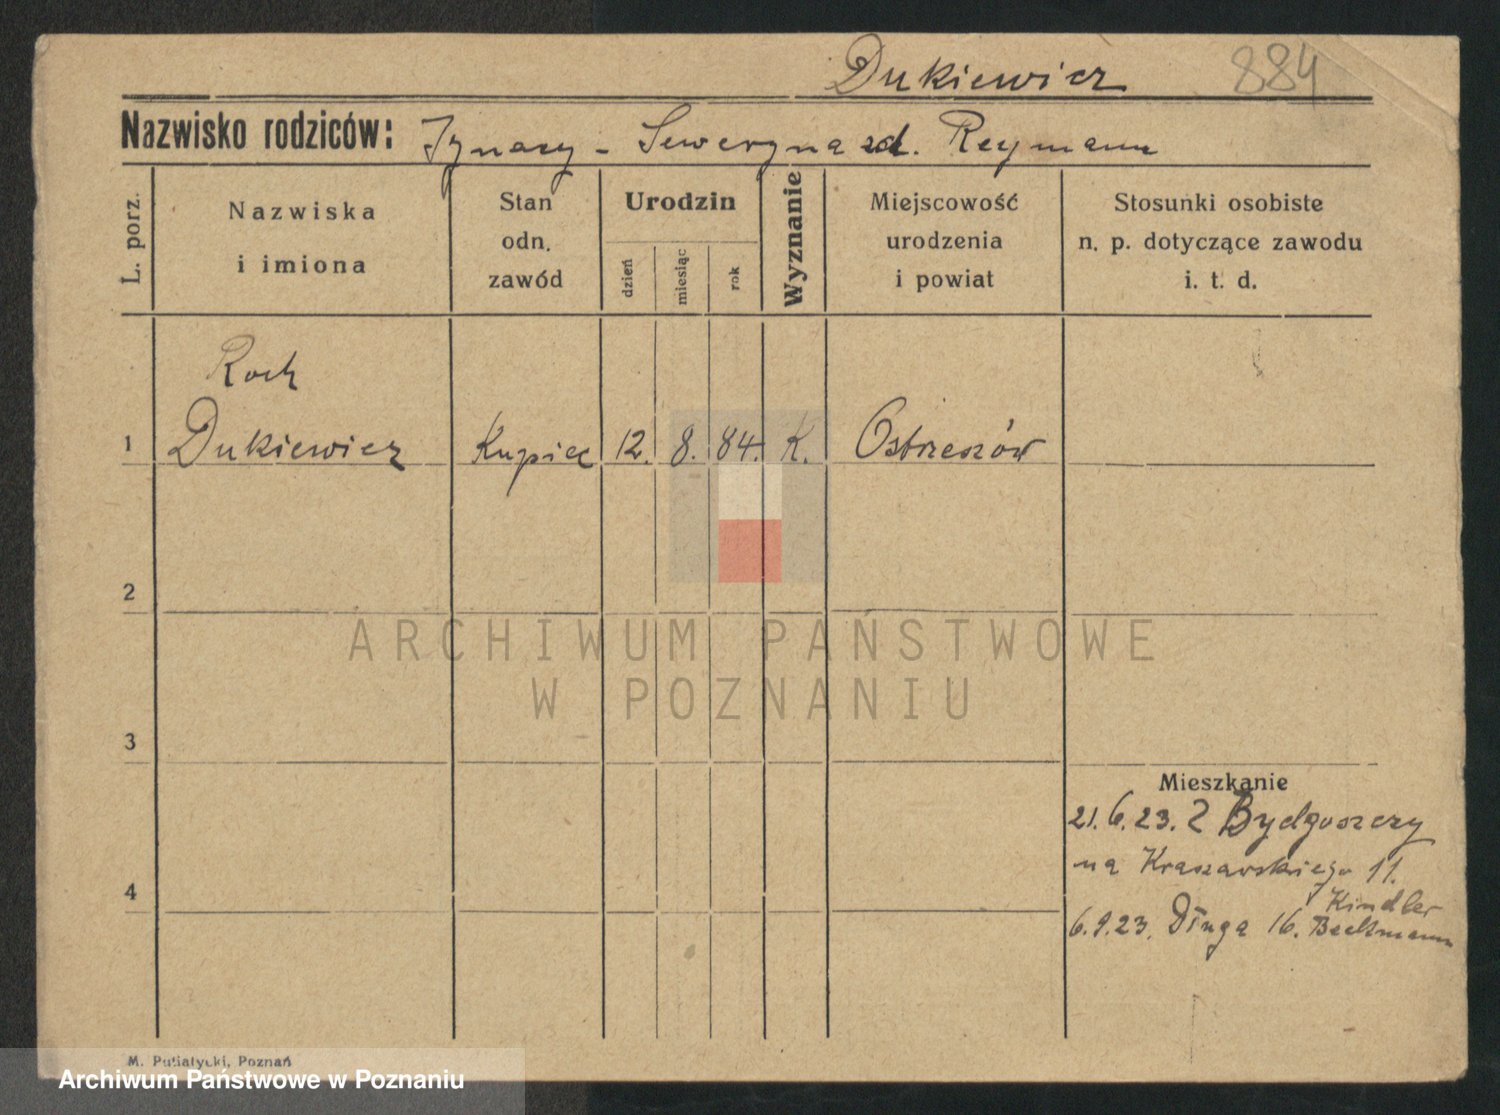 Dukiewicz 884
Nazwisko rodziców: Ignacy - Seweryna zd. Reymann
L. porz.
Nazwiska
i imiona
Stan
odn.
zawód
Urodzin
dzień
miesiąc
rok
Wyznanie
Miejscowość
urodzenia
i powiat
Stosunki osobiste
n. p. dotyczące zawodu
i. t. d.
Roch
1 Dukiewicz Kupiec 12. 8. 84. K. Ostrzeszów
2
ARCHIWUM PAŃSTWOWE
W POZNANIU
3
Mieszkanie
21.6.23. Z Bydgoszczy
na Kraszewskiego 11.
4
Kindler
6.9.23. Długa 16. Beckmann
M. Putiatycki, Poznań
Archiwum Państwowe w Poznaniu